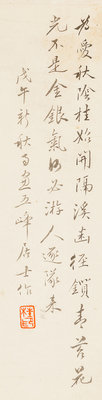 為愛秋陰桂始開隔溪幽徑鎖青苔花
光不是金銀氣何必游人逐隊來
戊午新秋五峰居士作